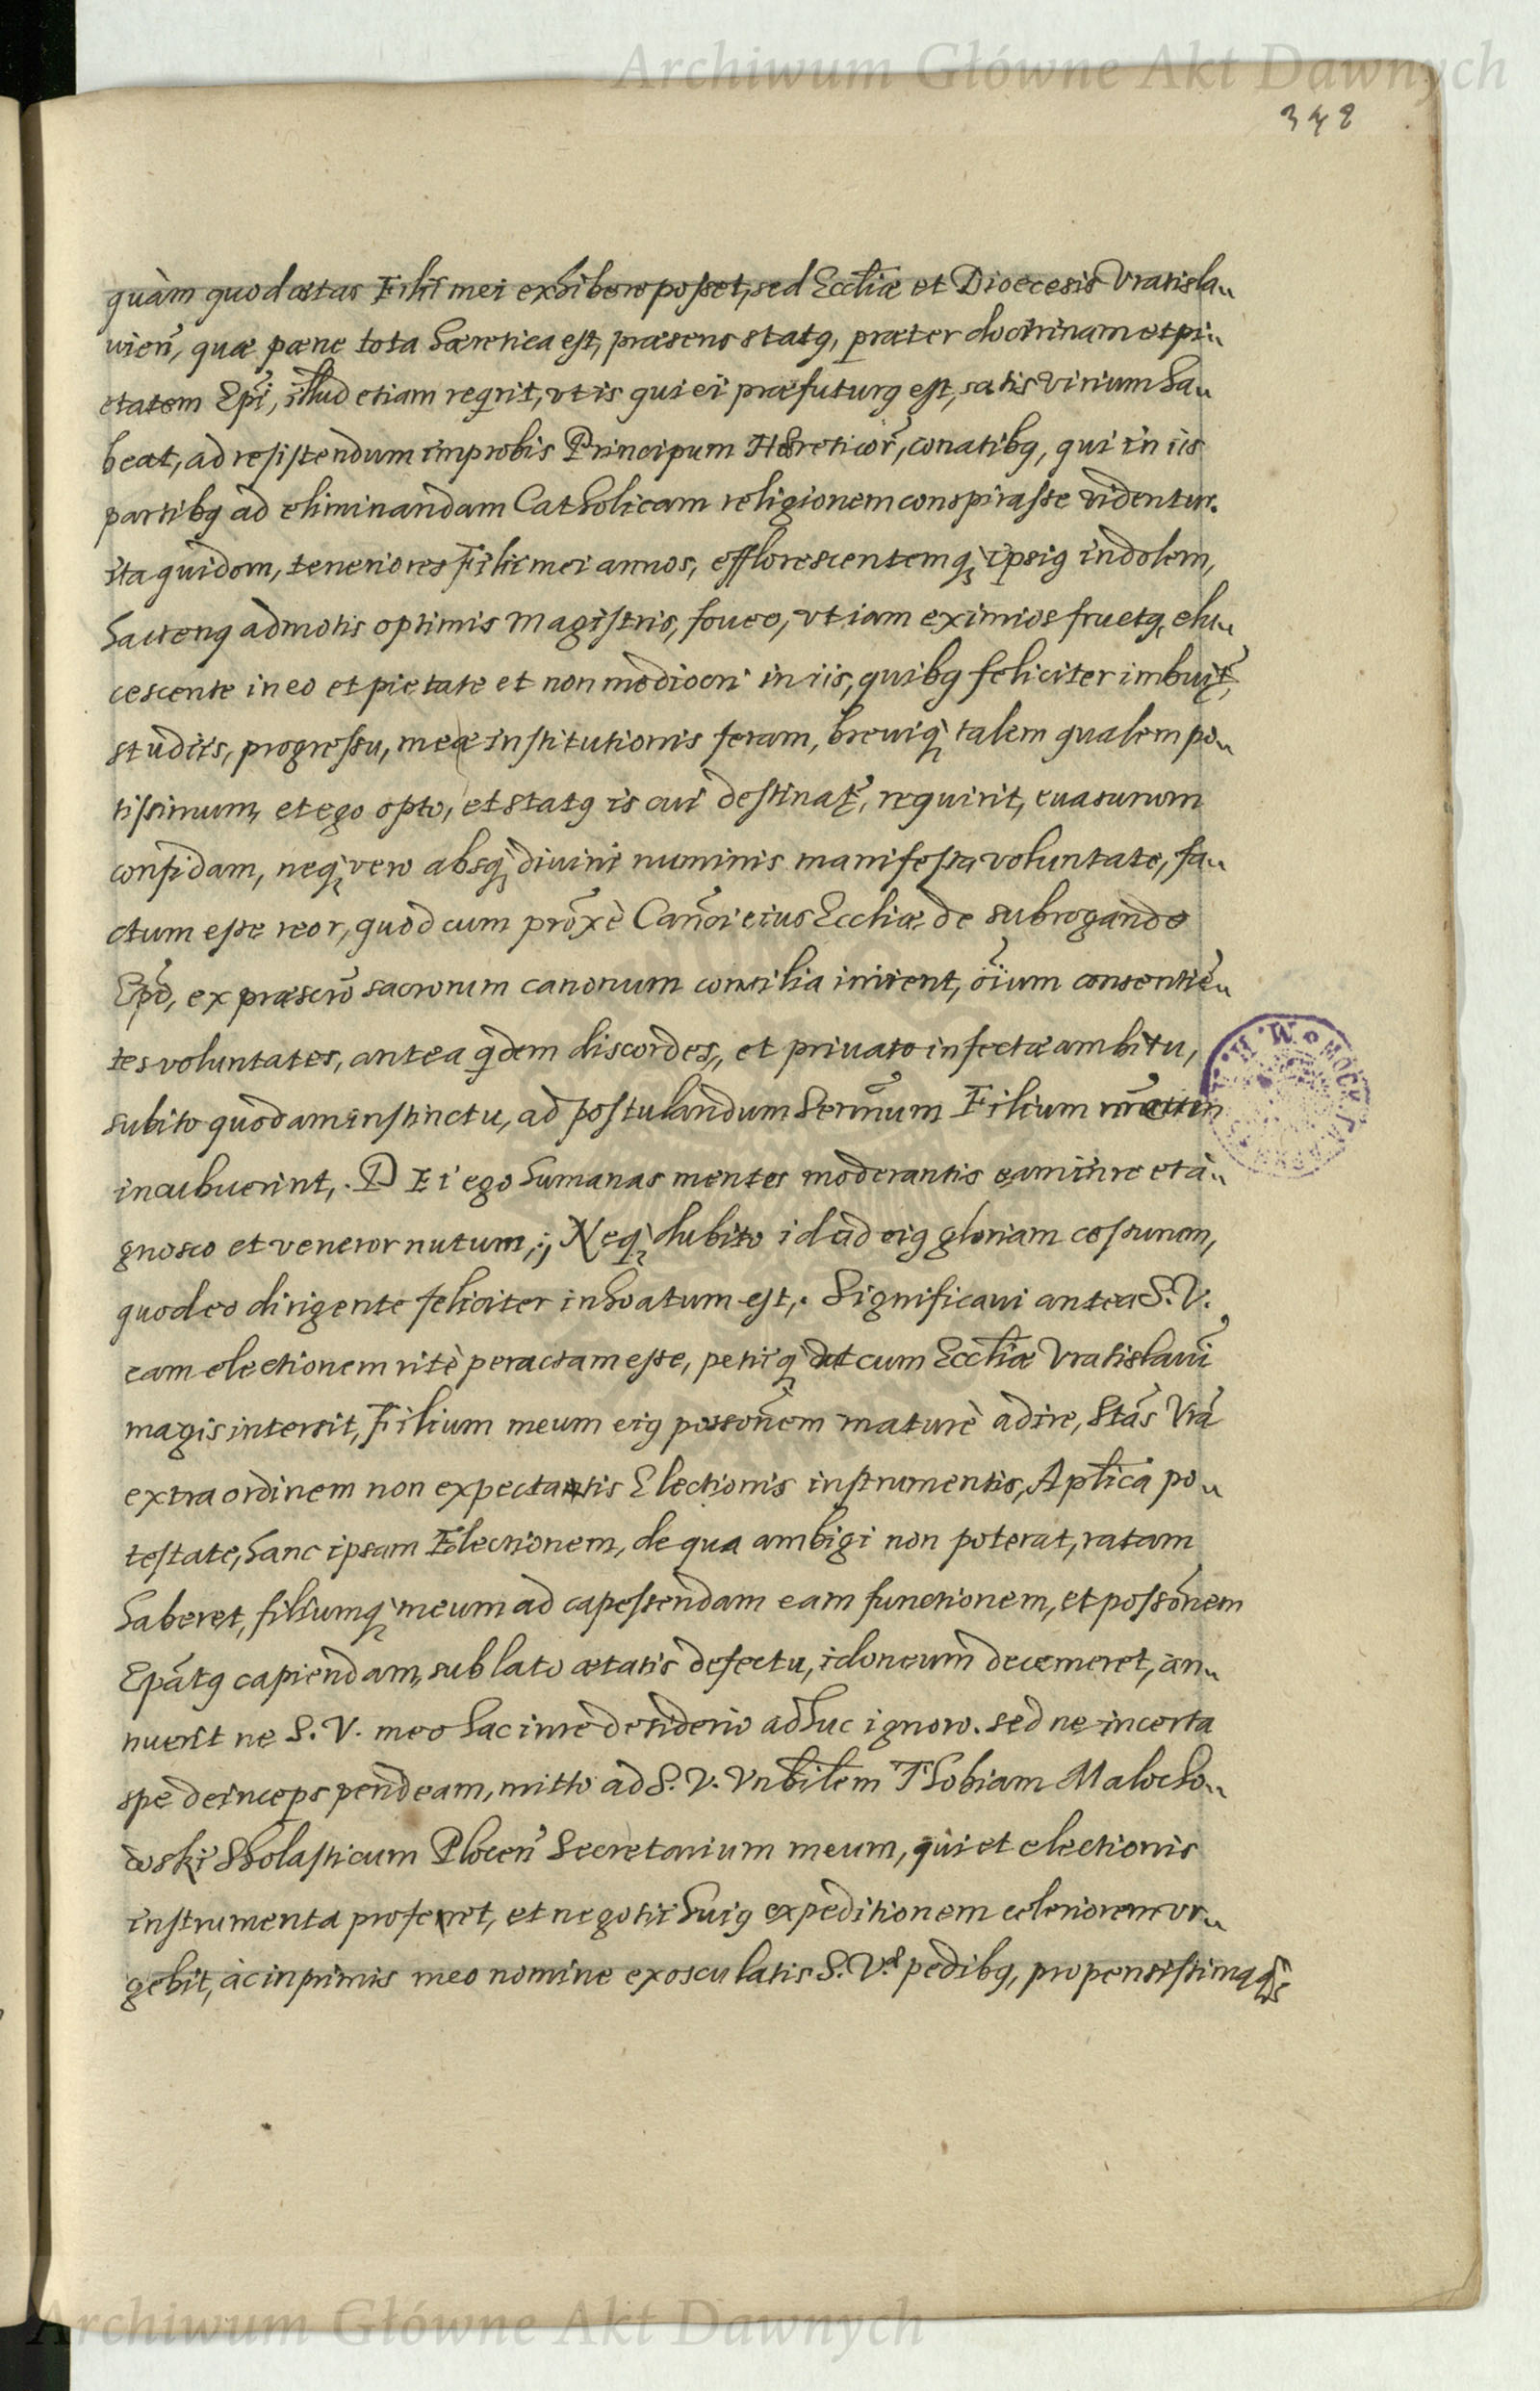 Archiwum Główne Akt Dawnych
348
quàm quod ætas Filii mei exhibere posset, sed Eccłiæ et Dioecesis Vratisla„
uien̄, quæ pæne tota hæretica est, præsens statq, præter doctrinam et pi„
etatem Epī, illud etiam reqrit, vt is qui ei præfuturq est, satis virium ha„
beat, ad resistendum improbis Principum Hæreticor̄, conatibq, qui in iis
partibq ad eliminandam Catholicam religionem conspirasse videntur.
ita quidem, teneriores Filii mei annos, efflorescentemq; ipsiq indolem,
hactenq admotis optimis magistris, foueo, vt iam eximios fructq, elu„
cescente in eo et pietate et non mediocri in iis, quibq feliciter imbuit̄,
studiis, progressu, meæ institutionis feram, breuiq; talem qualem po„
tissimum, et ego opto, et statq is cui destinat̄, requirit, euasurum
confidam, neq; vero absq; diuini numinis manifesta voluntate, fa„
ctum esse reor, quod cum prōxè Canōci eius Eccliæ de subrogando
Epō, ex præscrō sacrorum canonum consilia inirent, ōium consentiē„
tes voluntates, antea qdem discordes, et priuato infectæ ambitu,
subito quodam instinctu, ad postulandum Serm̄um Filium
incubuerint,. DEi ego humanas mentes moderantis eam in re et a„
gnosco et veneror nutum,; Neq; dubito id ad eiq gloriam cessurum,
quod eo dirigente feliciter inhoatum est,. Significaui antea S. V.
eam electionem ritè peractam esse, petiiq; vt cum Eccłiæ Vratislaui̇̄
magis intersit, Filium meum eiq possōnem maturè adire, Stās Vrā
extra ordinem non expectatis Electionis instrumentis, Aplīca po„
testate, hanc ipsam Electionem, de qua ambigi non poterat, ratam
haberet, filiumq; meum ad capessendam eam functionem, et possōnem
Epātq capiendam, sublato ætatis defectu, idoneum decerneret, an„
nuerit ne S. V. meo hac in re desiderio adhuc ignoro. sed ne incerta
spe deinceps pendeam, mitto ad S. V. Vnbīlem Thobiam Malocho„
woski Sholasticum Plocen̄ Secretarium meum, qui et electionis
instrumenta proferret, et negotii huiq expeditionem celeriorem vr„
gebit, ac inprimis meo nomine exosculatis S. V. pedibq, propensissimaq;
Archiwum Główne Akt Dawnych